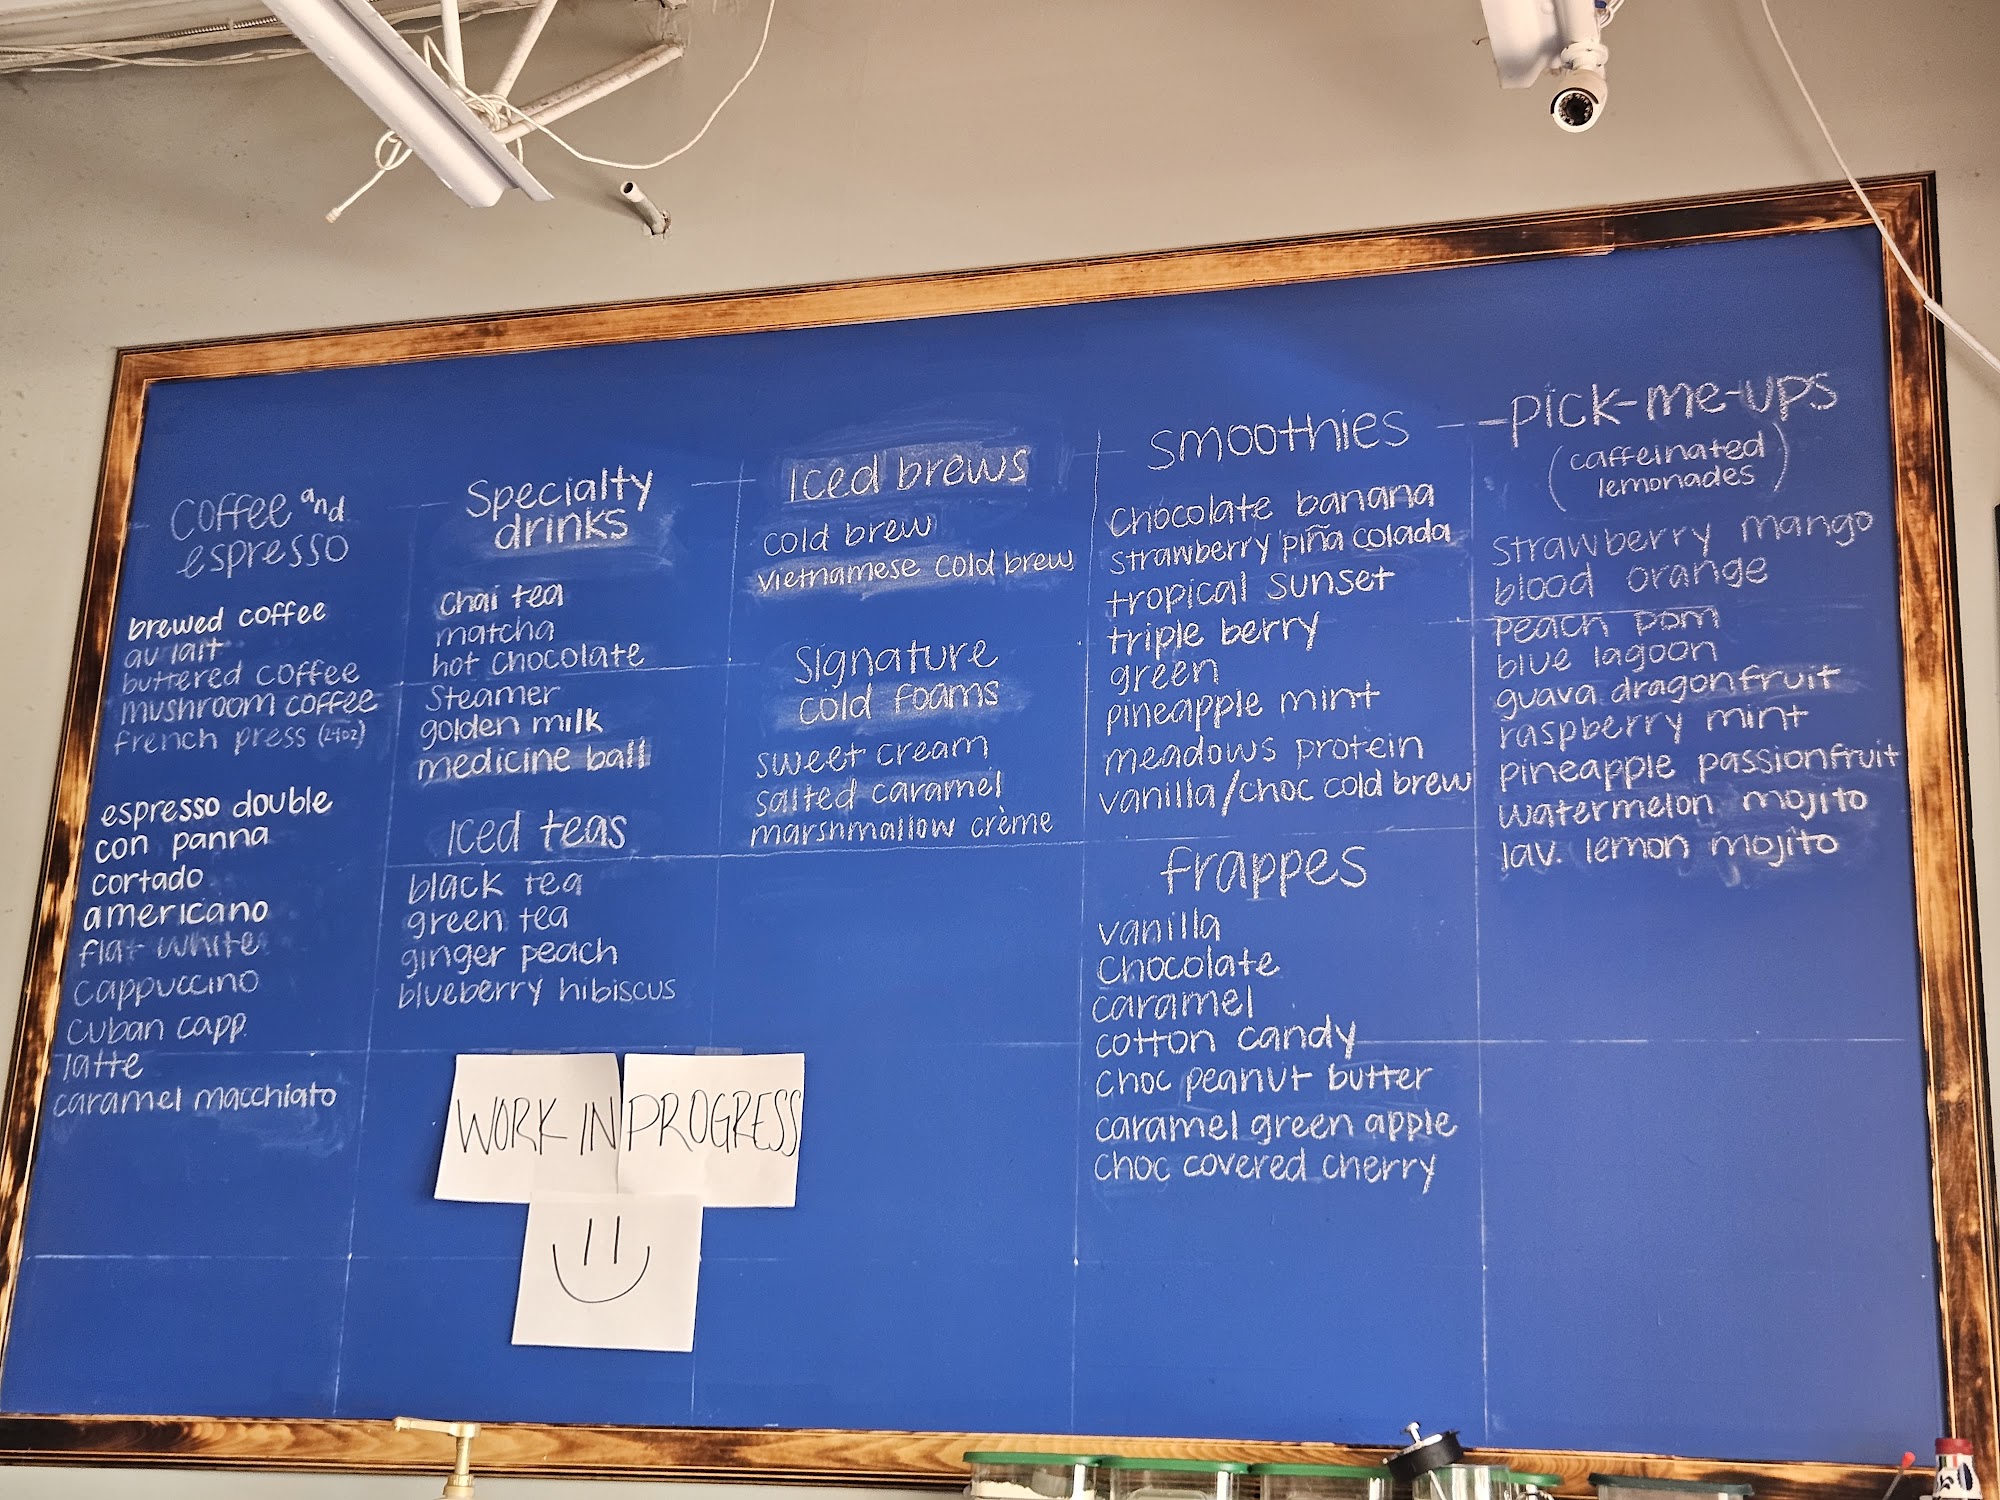 coffee and
espresso
brewed coffee
au lait
buttered coffee
mushroom coffee
french press (24oz)
espresso double
con panna
cortado
americano
flat white
cappuccino
cuban capp.
latte
caramel macchiato
Specialty
drinks
chai tea
matcha
hot chocolate
steamer
golden milk
medicine ball
Iced teas
black tea
green tea
ginger peach
blueberry hibiscus
WORK IN PROGRESS
Iced brews
cold brew
vietnamese cold brew
Signature
cold foams
sweet cream
salted caramel
marshmallow crème
smoothies
chocolate banana
strawberry piña colada
tropical sunset
triple berry
green
pineapple mint
meadows protein
vanilla/choc cold brew
frappes
vanilla
chocolate
caramel
cotton candy
choc peanut butter
caramel green apple
choc covered cherry
pick-me-ups
(caffeinated
lemonades)
strawberry mango
blood orange
peach pom
blue lagoon
guava dragonfruit
raspberry mint
pineapple passionfruit
watermelon mojito
lav. lemon mojito